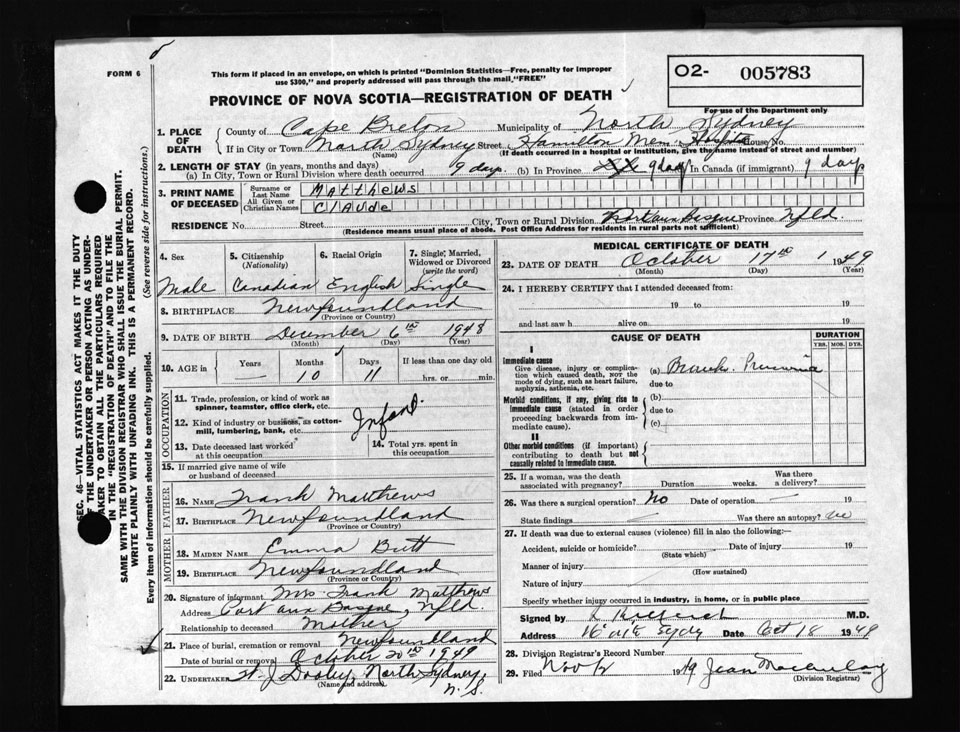 FORM 6
This form if placed in an envelope, on which is printed "Dominion Statistics—Free, penalty for improper
use $300," and properly addressed will pass through the mail, "FREE"
O2- 005783
For use of the Department only
PROVINCE OF NOVA SCOTIA—REGISTRATION OF DEATH
1. PLACE OF DEATH
County of Cape Breton Municipality of North Sydney
If in City or Town North Sydney Street Hamilton Mem. Hospital House No.
(Name) (If death occurred in a hospital or institution, give the name instead of street and number)
2. LENGTH OF STAY (in years, months and days)
(a) In City, Town or Rural Division where death occurred 9 days. (b) In Province 9 days In Canada (if immigrant) 9 days
3. PRINT NAME OF DECEASED
Surname or Last Name Matthews
All Given or Christian Names Claude
RESIDENCE No. Street City, Town or Rural Division Port aux Basque Province Nfld.
(Residence means usual place of abode. Post Office Address for residents in rural parts not sufficient)
4. Sex 5. Citizenship (Nationality) 6. Racial Origin 7. Single, Married, Widowed or Divorced (write the word)
Male Canadian English Single
8. BIRTHPLACE Newfoundland
(Province or Country)
9. DATE OF BIRTH December 6th 1948
(Month) (Day) (Year)
10. AGE in Years Months Days If less than one day old
— 10 11 hrs. or min.
OCCUPATION
11. Trade, profession, or kind of work as
spinner, teamster, office clerk, etc.
12. Kind of industry or business, as cotton-
mill, lumbering, bank, etc. Infant.
13. Date deceased last worked
at this occupation
14. Total yrs. spent in
this occupation
15. If married give name of wife
or husband of deceased
FATHER
16. NAME Frank Matthews
17. BIRTHPLACE Newfoundland
(Province or Country)
MOTHER
18. MAIDEN NAME Emma Butt
19. BIRTHPLACE Newfoundland
(Province or Country)
20. Signature of informant Mrs Frank Matthews
Address Port aux Basque, Nfld.
Relationship to deceased Mother
21. Place of burial, cremation or removal Newfoundland
Date of burial or removal October 20th 1949
22. UNDERTAKER J. Dooley, North Sydney,
(Name and address) N.S.
MEDICAL CERTIFICATE OF DEATH
23. DATE OF DEATH October 17th 1949
(Month) (Day) (Year)
24. I HEREBY CERTIFY that I attended deceased from:
19 to 19
and last saw h alive on 19
CAUSE OF DEATH
DURATION
YRS. MOS. DYS.
I
Immediate cause
Give disease, injury or complica-
tion which caused death, NOT the
mode of dying, such as heart failure,
asphyxia, asthenia, etc.
(a) Broncho Pneumonia
due to
Morbid conditions, if any, giving rise to
immediate cause (stated in order
proceeding backwards from im-
mediate cause).
(b)
due to
(c)
II
Other morbid conditions (if important)
contributing to death but not
causally related to immediate cause.
25. If a woman, was the death
associated with pregnancy? Duration weeks. Was there
a delivery?
26. Was there a surgical operation? No Date of operation — 19
State findings — Was there an autopsy? no
27. If death was due to external causes (violence) fill in also the following:—
Accident, suicide or homicide? Date of injury 19
(State which)
Manner of injury
(How sustained)
Nature of injury
Specify whether injury occurred in industry, in home, or in public place
Signed by M.D.
Address North Sydney Date Oct 18 1949
28. Division Registrar's Record Number
29. Filed Nov 19 Jean Macaulay
(Division Registrar)
SEC. 46—VITAL STATISTICS ACT MAKES IT THE DUTY
OF THE UNDERTAKER OR PERSON ACTING AS UNDER-
TAKER TO OBTAIN ALL THE PARTICULARS REQUIRED
IN THE "REGISTRATION OF DEATH" AND TO FILE THE
SAME WITH THE DIVISION REGISTRAR WHO SHALL ISSUE THE BURIAL PERMIT.
WRITE PLAINLY WITH UNFADING INK. THIS IS A PERMANENT RECORD.
Every item of information should be carefully supplied. (See reverse side for instructions.)